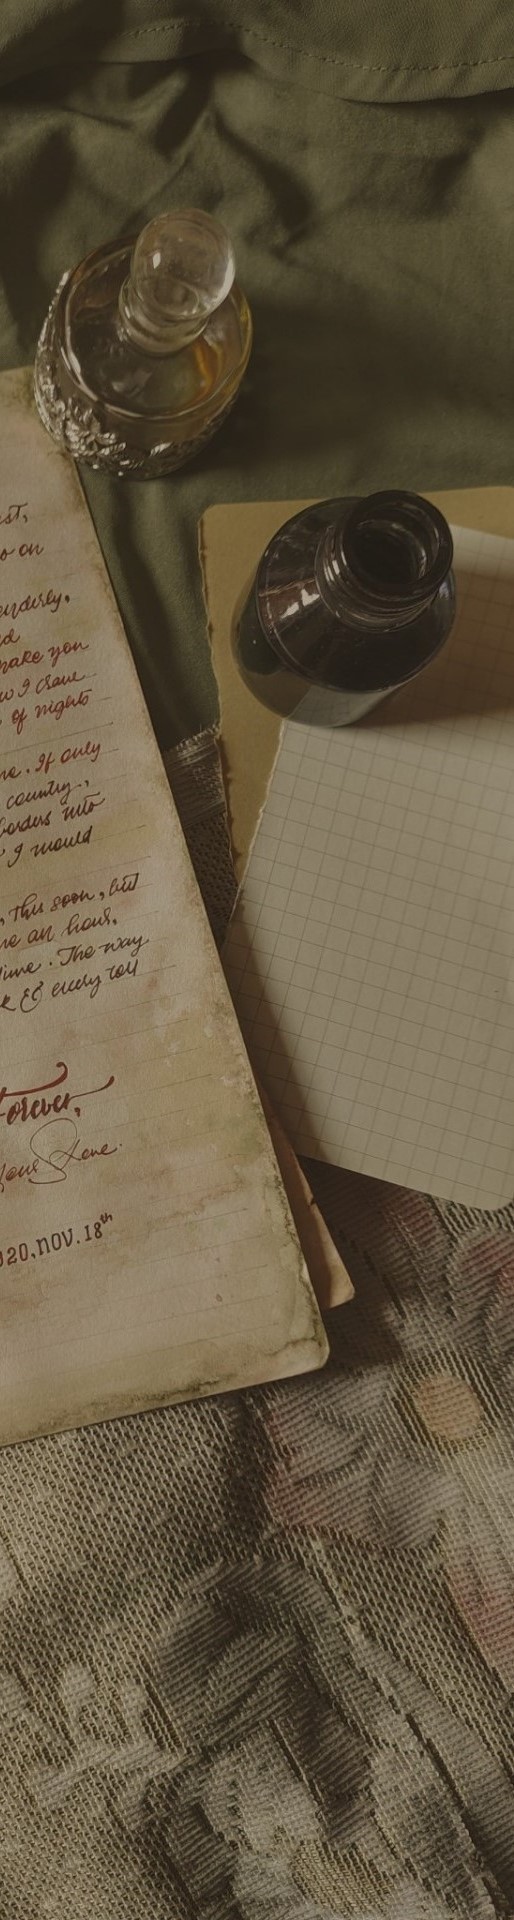 st,
o on
enderly.
d
make you
w I crave
of nights
ne. If only
country,
borders into
I would
, this soon, but
me an hour.
time. The way
k & every
Forever,
920, NOV. 18th